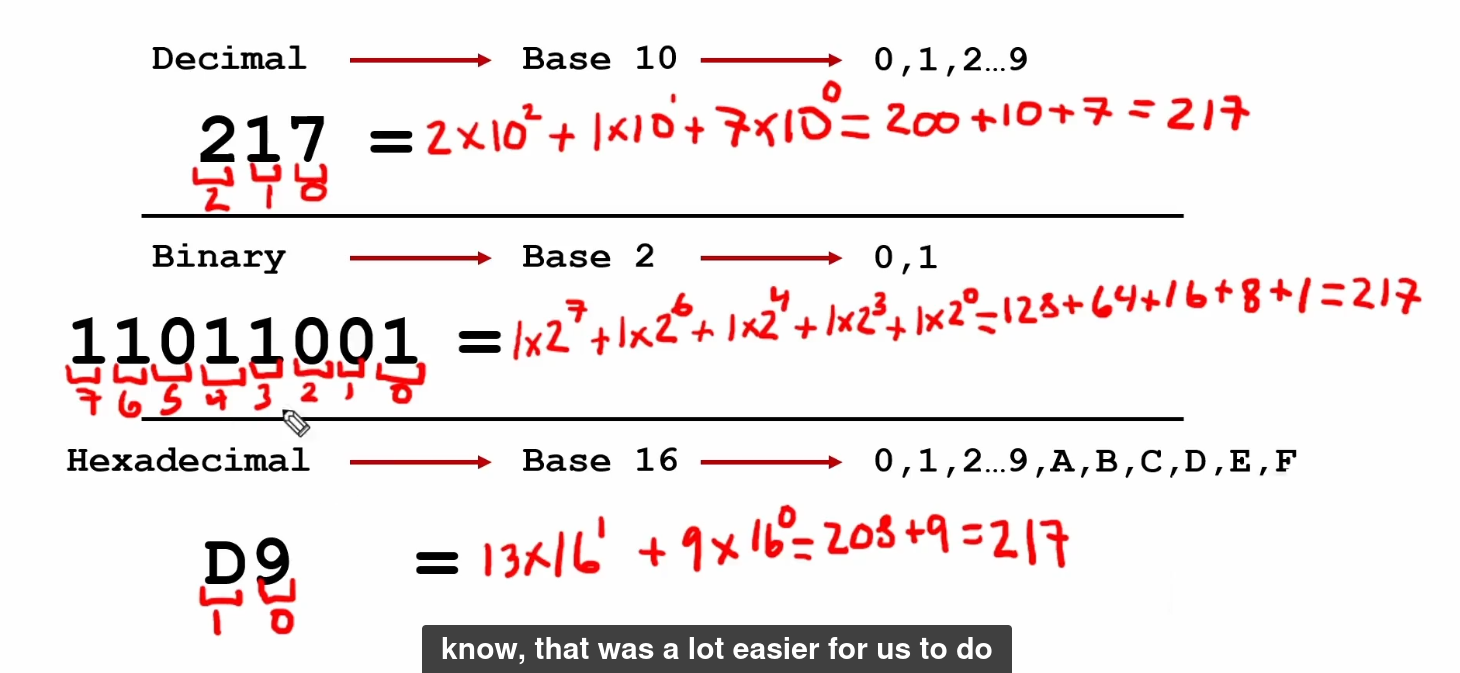 Decimal → Base 10 → 0,1,2…9
217 = 2×10² + 1×10¹ + 7×10⁰ = 200+10+7 = 217
2 1 0
Binary → Base 2 → 0,1
11011001 = 1×2⁷ + 1×2⁶ + 1×2⁴ + 1×2³ + 1×2⁰ = 128+64+16+8+1 = 217
7 6 5 4 3 2 1 0
Hexadecimal → Base 16 → 0,1,2…9,A,B,C,D,E,F
D9 = 13×16¹ + 9×16⁰ = 208+9 = 217
1 0
know, that was a lot easier for us to do